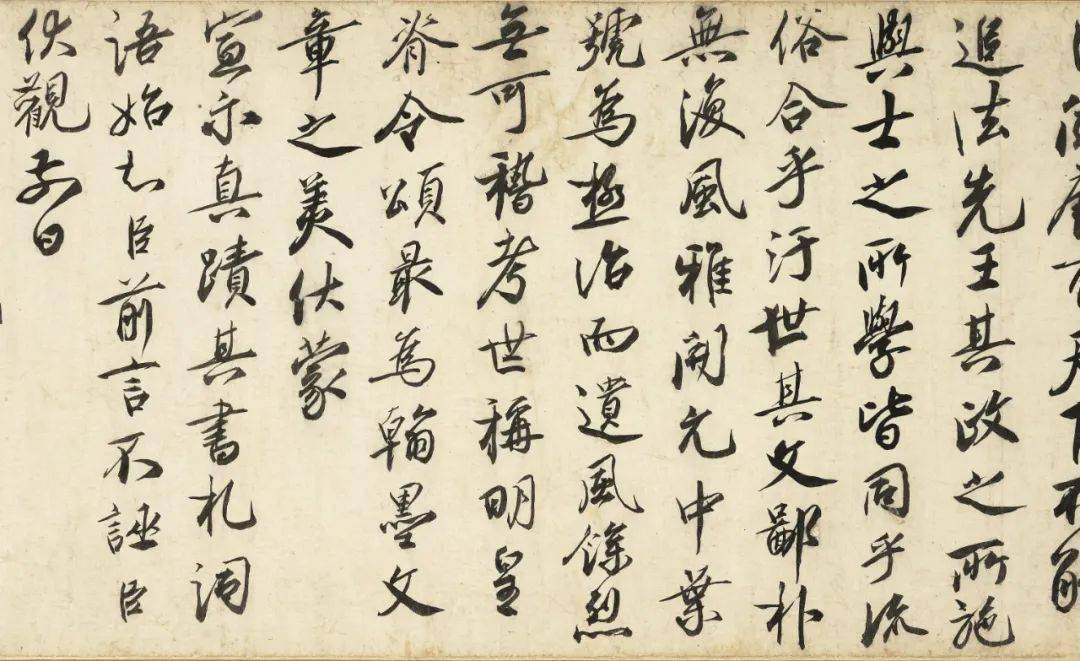 唐有天下不能
追法先王其政之所施
與士之所學皆同乎流
俗合乎汙世其文鄙朴
無復風雅開元中葉
號為極治而遺風餘烈
無可稽考世稱明皇
脊令頌最為翰墨文
章之美伏蒙
宣示真蹟其書札詞
語始知臣前言不誣臣
伏觀前日